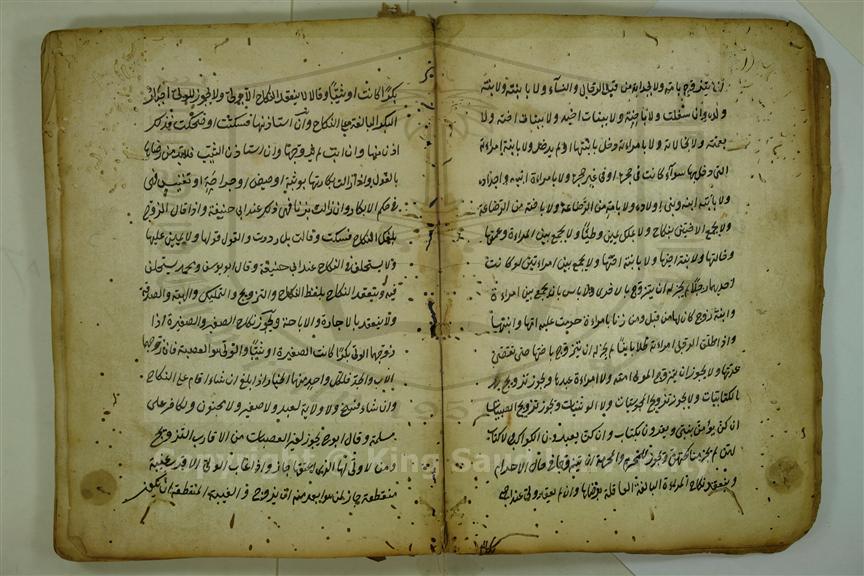 ان يتزوج بامه ولا بجداته من قبل الرجال والنساء ولا ببنته ولا بنته
ولده وان سفلت ولا باخته ولا ببنات اخته ولا ببنات اخيه ولا
بعمته ولا بخالته ولا بام امراته دخل بابنتها او لم يدخل ولا بابنة امراته
التي دخل بها سواء كانت في حجره او في غير حجره ولا بامراة ابيه واجداده
ولا بامراة ابنه وبني اولاده ولا بامه من الرضاعة ولا باخته من الرضاعة
ولا يجمع الاختين بنكاح ولا بملك يمين وطئا ولا يجمع بين المراة وعمتها
وخالتها ولا بنة اخيها ولا بابنة اختها ولا يجمع بين امراتين لو كانت
احديهما رجلا لم يجز له ان يتزوج بالاخرى ولا باس بان يجمع بين امراة
وابنة زوج كان لها من قبل ومن زنا بامراة حرمت عليه امها وابنتها
واذا طلق الرجل امراته طلاقا بائنا لم يجز له ان يتزوج باختها حتى تنقضي
عدتها ولا يجوز ان يتزوج المولى امته ولا المراة عبدها ويجوز تزويج
الكتابيات ولا يجوز تزويج المجوسيات ولا الوثنيات ويجوز تزويج الصابيات
ان كن يؤمن بنبي ويقرون بكتاب وان كن يعبدون الكواكب ولا كتاب
لهن لم يجز مناكحتهن ويجوز للمحرم والمحرمة ان يتزوجا في حال الاحرام
وينعقد نكاح المراة البالغة العاقلة برضاها وان لم يعقد ولي عند ابي
بكرا كانت او ثيبا وقالا لا ينعقد النكاح الا بولي ولا يجوز للولي اجبار
البكر البالغة على النكاح وان استاذنها فسكتت او ضحكت فذلك
اذن منها وان ابت لم يزوجها وان استاذن الثيب فلا بد من رضاها
بالقول واذا زالت بكارتها بوثبة او حيضة او جراحة او تعنيس فهي
في حكم الابكار وان زالت بزنا فهي كذلك عند ابي حنيفة واذا قال الزوج
بلغك النكاح فسكت وقالت بل رددت والقول قولها ولا يمين عليها
ولا يستحلف في النكاح عند ابي حنيفة وقال ابو يوسف ومحمد يستحلف
فيه وينعقد النكاح بلفظ النكاح والتزويج والتمليك والهبة والصدقة
ولا ينعقد بالاجارة والاباحة ويجوز نكاح الصغير والصغيرة اذا
زوجها الولي بكرا كانت الصغيرة او ثيبا والولي هو العصبة فان زوجها
الاب والجد فلكل واحد منهما الخيار اذا بلغ ان شاء اقام على النكاح
وان شاء فسخ ولا ولاية لعبد ولا صغير ولا مجنون ولا كافر على
مسلمة وقال ابو ح يجوز لغير العصبات من الاقارب التزويج
ومن لا ولي لها اذا اعتقها جاز واذا غاب الولي الاقرب غيبة
منقطعة جاز لمن هو ابعد منه ان يزوج والغيبة المنقطعة ان يكون